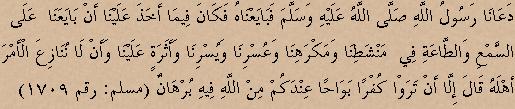 دَعَانَا رَسُولُ اللَّهِ صَلَّى اللَّهُ عَلَيْهِ وَسَلَّمَ فَبَايَعْنَاهُ فَكَانَ فِيمَا أَخَذَ عَلَيْنَا أَنْ بَايَعَنَا عَلَى
السَّمْعِ وَالطَّاعَةِ فِي مَنْشَطِنَا وَمَكْرَهِنَا وَعُسْرِنَا وَيُسْرِنَا وَأَثَرَةٍ عَلَيْنَا وَأَنْ لَا نُنَازِعَ الْأَمْرَ
أَهْلَهُ قَالَ إِلَّا أَنْ تَرَوْا كُفْرًا بَوَاحًا عِنْدَكُمْ مِنَ اللَّهِ فِيهِ بُرْهَانٌ (مسلم: رقم ١٧٠٩)